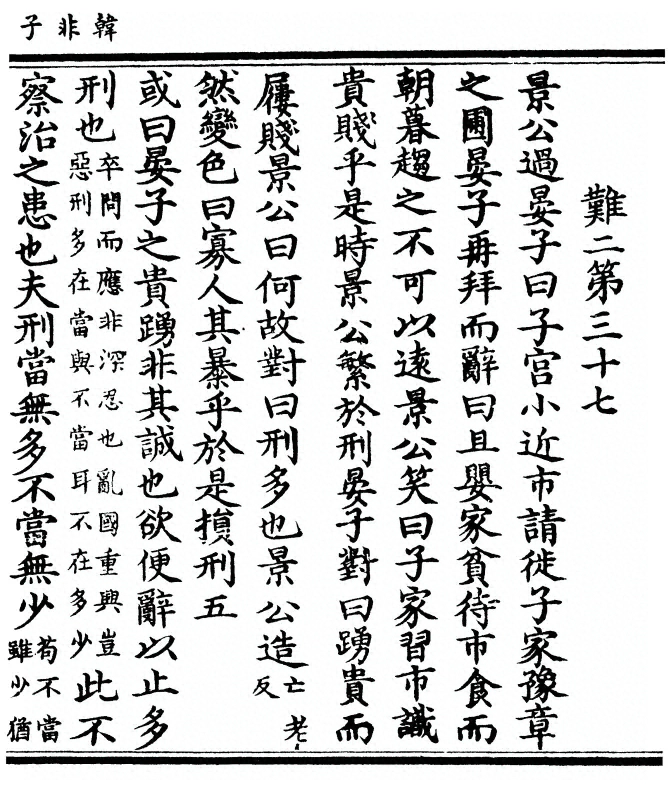 韓非子
難二第三十七
景公過晏子曰子宮小近市請徙子家豫章
之圃晏子再拜而辭曰且嬰家貧待市食而
朝暮趨之不可以遠景公笑曰子家習市識
貴賤乎是時景公繁於刑晏子對曰踴貴而
屨賤景公曰何故對曰刑多也景公造亡老反
然變色曰寡人其暴乎於是損刑五
或曰晏子之貴踴非其誠也欲便辭以止多
刑也卒問而應非深忍也亂國重興豈惡刑多在當與不當耳不在多少此不
察治之患也夫刑當無多不當無少苟不當雖少猶